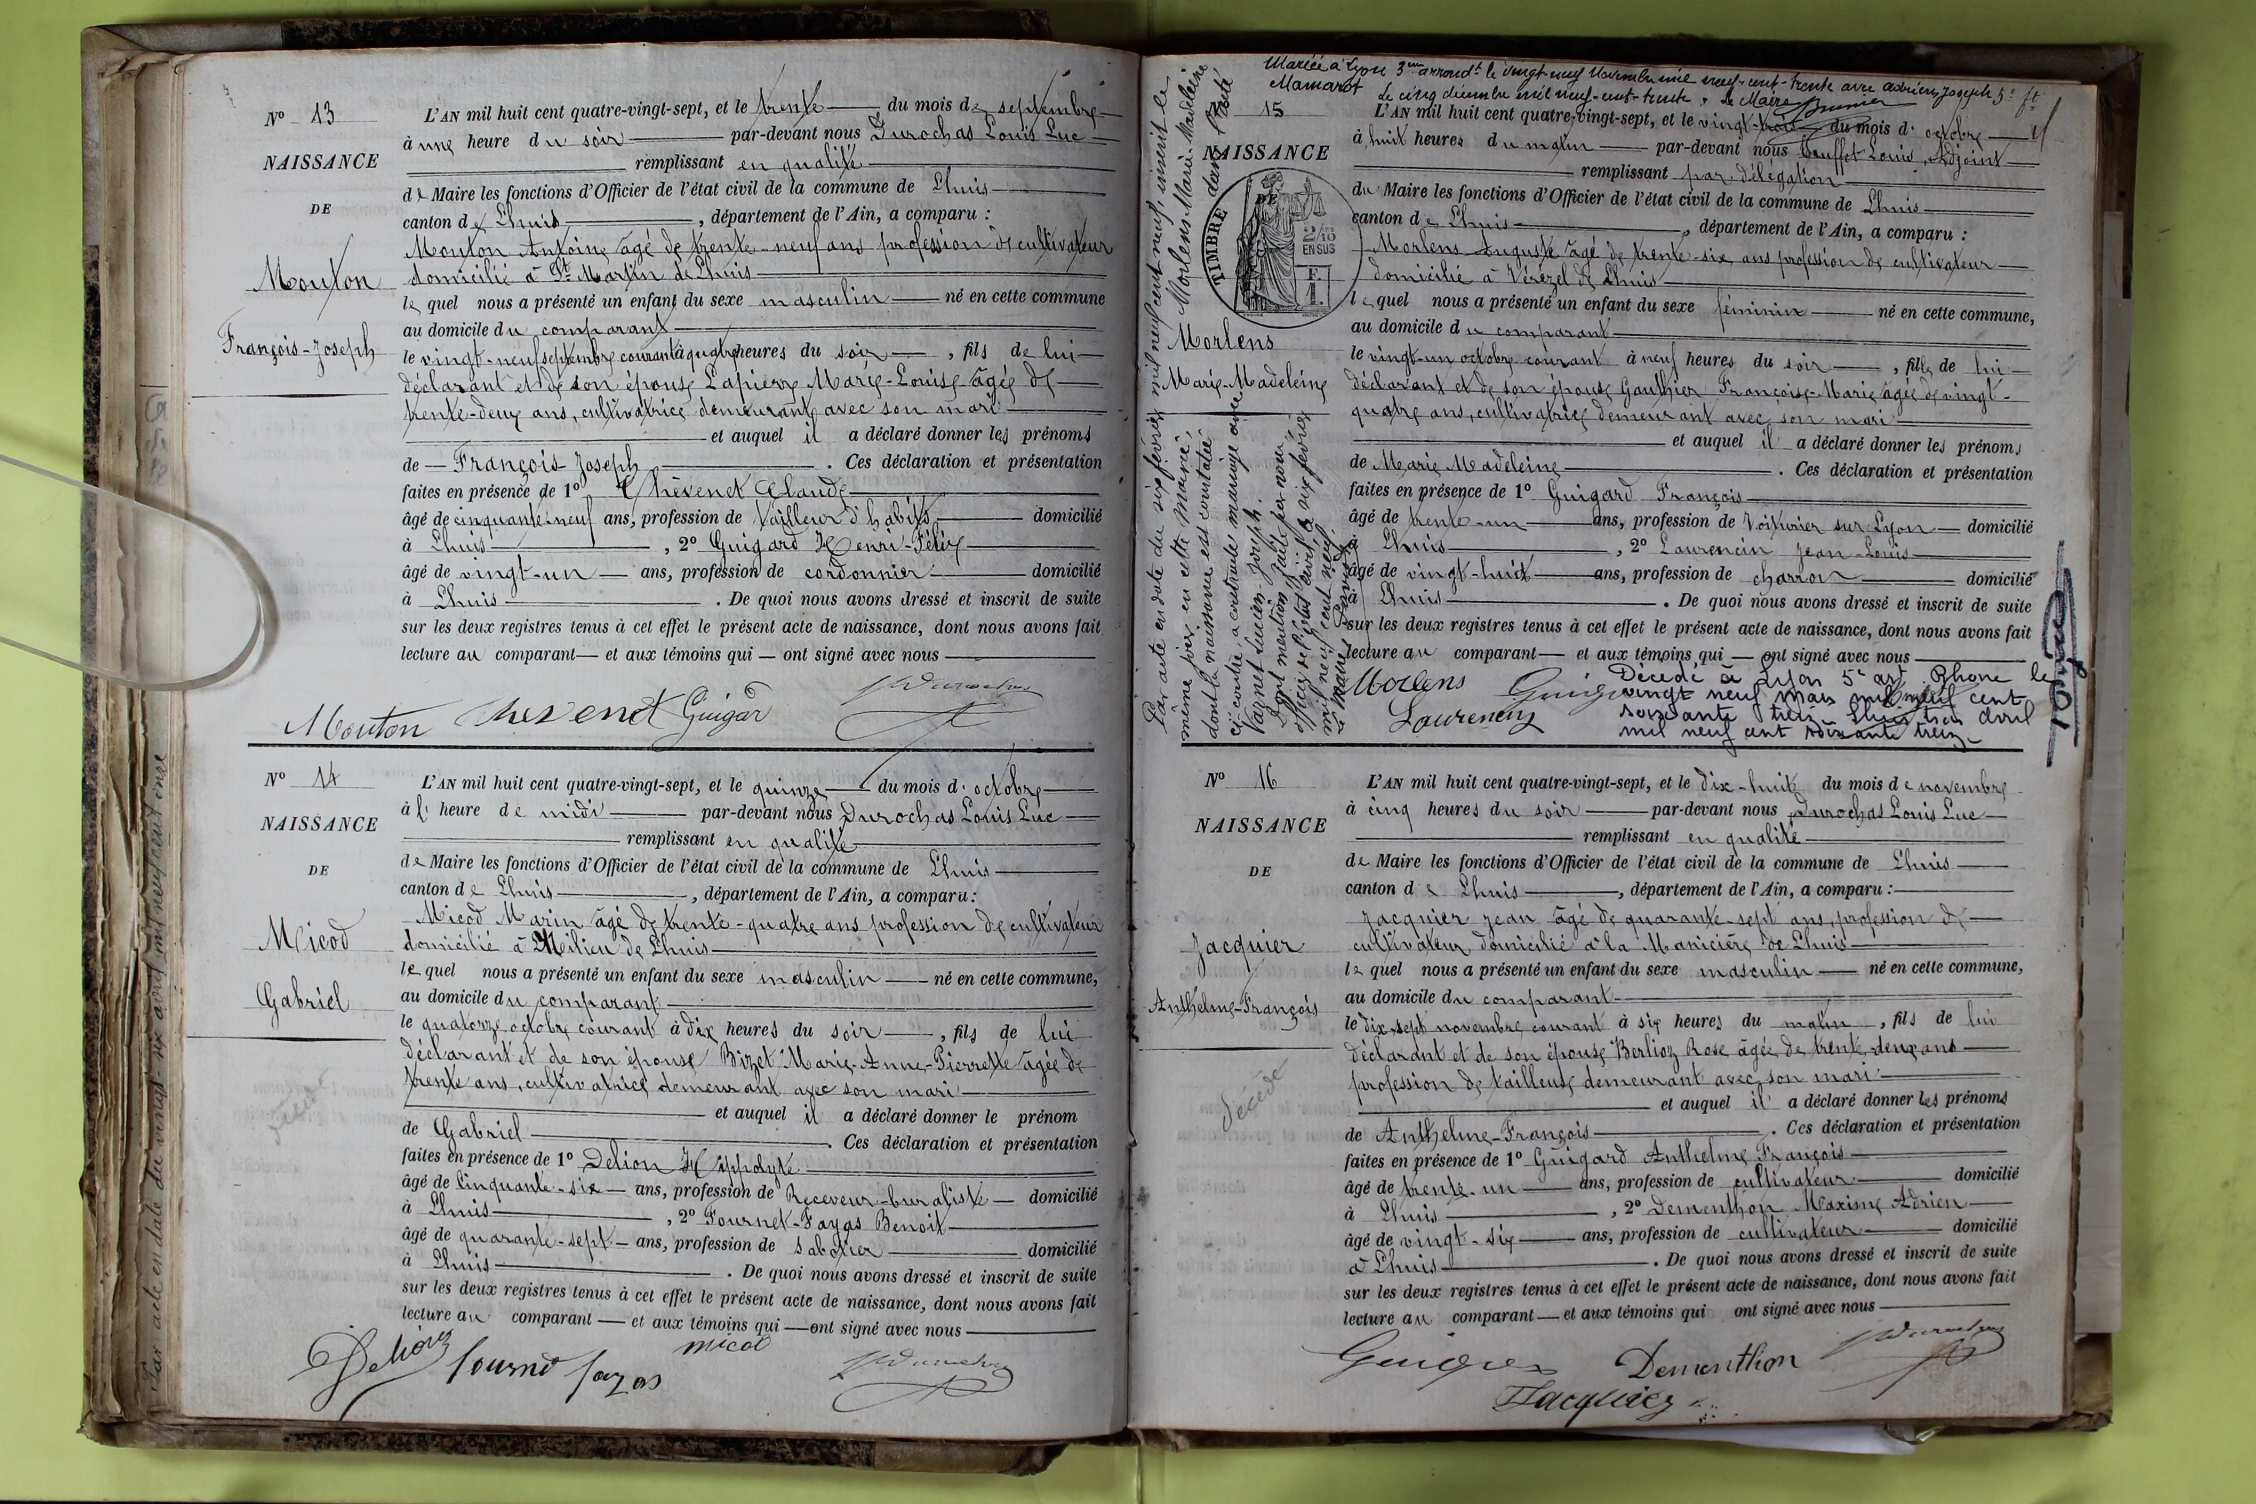 N° 13
NAISSANCE
DE
Mouton
François-Joseph
L'AN mil huit cent quatre-vingt-sept, et le trente du mois de septembre
à une heure du soir par-devant nous Durochas Louis Luc
remplissant en qualité
de Maire les fonctions d'Officier de l'état civil de la commune de Lhuis
canton de Lhuis, département de l'Ain, a comparu :
Mouton Antoine âgé de trente-neuf ans profession de cultivateur
domicilié à St Martin de Lhuis
lequel nous a présenté un enfant du sexe masculin né en cette commune
au domicile du comparant
le vingt-neuf septembre courant à quatre heures du soir, fils de lui
déclarant et de son épouse Lapierre Marie-Louise âgée de
trente-deux ans, cultivatrice demeurant avec son mari
et auquel il a déclaré donner les prénoms
de François-Joseph. Ces déclaration et présentation
faites en présence de 1° Chevenet Claude
âgé de cinquante-neuf ans, profession de tailleur d'habits domicilié
à Lhuis, 2° Guigard Henri-Félix
âgé de vingt-un ans, profession de cordonnier domicilié
à Lhuis. De quoi nous avons dressé et inscrit de suite
sur les deux registres tenus à cet effet le présent acte de naissance, dont nous avons fait
lecture au comparant et aux témoins qui ont signé avec nous
Mouton Chevenet Guigar
N° 14
NAISSANCE
DE
Micod
Gabriel
L'AN mil huit cent quatre-vingt-sept, et le quinze du mois d'octobre
à l'heure de midi par-devant nous Durochas Louis Luc
remplissant en qualité
de Maire les fonctions d'Officier de l'état civil de la commune de Lhuis
canton de Lhuis, département de l'Ain, a comparu :
Micod Marin âgé de trente-quatre ans profession de cultivateur
domicilié à Milieu de Lhuis
lequel nous a présenté un enfant du sexe masculin né en cette commune,
au domicile du comparant
le quatorze octobre courant à dix heures du soir, fils de lui
déclarant et de son épouse Bizet Marie-Anne-Pierrette âgée de
trente ans, cultivatrice demeurant avec son mari
et auquel il a déclaré donner le prénom
de Gabriel. Ces déclaration et présentation
faites en présence de 1° Delion Hippolyte
âgé de cinquante-six ans, profession de Receveur-buraliste domicilié
à Lhuis, 2° Fournet-Fayas Benoît
âgé de quarante-sept ans, profession de sabotier domicilié
à Lhuis. De quoi nous avons dressé et inscrit de suite
sur les deux registres tenus à cet effet le présent acte de naissance, dont nous avons fait
lecture au comparant et aux témoins qui ont signé avec nous
Delion fournet fayas micod
Mariée à Lyon 3me arrondt le vingt-neuf Novembre mil neuf-cent-trente avec Adrien Joseph
Mamarot Le cinq décembre mil neuf-cent-trente. Le Maire
15
NAISSANCE
DE
TIMBRE
2/10
EN SUS
F.
1.
Morlens
Marie-Madeleine
Par acte en date du six février mil neuf cent neuf, inscrit le
même jour en cette mairie, Morlens Marie-Madeleine
dont la naissance est constatée dans l'acte
ci-contre, a contracté mariage avec
Lucien Joseph.
Dont mention faite par nous,
officier de l'état civil, le six février
mil neuf cent neuf.
Le Maire
L'AN mil huit cent quatre-vingt-sept, et le vingt-trois du mois d'octobre
à huit heures du matin par-devant nous Louis, Adjoint
remplissant par délégation
du Maire les fonctions d'Officier de l'état civil de la commune de Lhuis
canton de Lhuis, département de l'Ain, a comparu :
Morlens Auguste âgé de trente-six ans profession de cultivateur
domicilié à Vérézel de Lhuis
lequel nous a présenté un enfant du sexe féminin né en cette commune,
au domicile du comparant
le vingt-un octobre courant à neuf heures du soir, fille de lui
déclarant et de son épouse Gauthier Françoise-Marie âgée de vingt-
quatre ans, cultivatrice demeurant avec son mari
et auquel il a déclaré donner les prénoms
de Marie Madeleine. Ces déclaration et présentation
faites en présence de 1° Guigard François
âgé de trente-un ans, profession de Voiturier sur Lyon domicilié
à Lhuis, 2° Laurencin Jean-Louis
âgé de vingt-huit ans, profession de charron domicilié
à Lhuis. De quoi nous avons dressé et inscrit de suite
sur les deux registres tenus à cet effet le présent acte de naissance, dont nous avons fait
lecture au comparant et aux témoins qui ont signé avec nous
Morlens
Laurencin
Décédé à Lyon 5e art Rhone le
vingt neuf mars mil neuf cent
soixante treize. Lhuis trois avril
mil neuf cent soixante treize
N° 16
NAISSANCE
DE
Jacquier
Anthelme-François
Décédé
L'AN mil huit cent quatre-vingt-sept, et le dix-huit du mois de novembre
à cinq heures du soir par-devant nous Durochas Louis Luc
remplissant en qualité
de Maire les fonctions d'Officier de l'état civil de la commune de Lhuis
canton de Lhuis, département de l'Ain, a comparu :
Jacquier Jean âgé de quarante-sept ans, profession de
cultivateur domicilié à la Manicière de Lhuis
lequel nous a présenté un enfant du sexe masculin né en cette commune,
au domicile du comparant
le dix-sept novembre courant à six heures du matin, fils de lui
déclarant et de son épouse Berlioz Rose âgée de trente-deux ans
profession de tailleuse demeurant avec son mari
et auquel il a déclaré donner les prénoms
de Anthelme-François. Ces déclaration et présentation
faites en présence de 1° Guigard Anthelme François
âgé de trente-un ans, profession de cultivateur domicilié
à Lhuis, 2° Dementhon Maxime Adrien
âgé de vingt-six ans, profession de cultivateur domicilié
à Lhuis. De quoi nous avons dressé et inscrit de suite
sur les deux registres tenus à cet effet le présent acte de naissance, dont nous avons fait
lecture au comparant et aux témoins qui ont signé avec nous
Dementhon
Jacquier